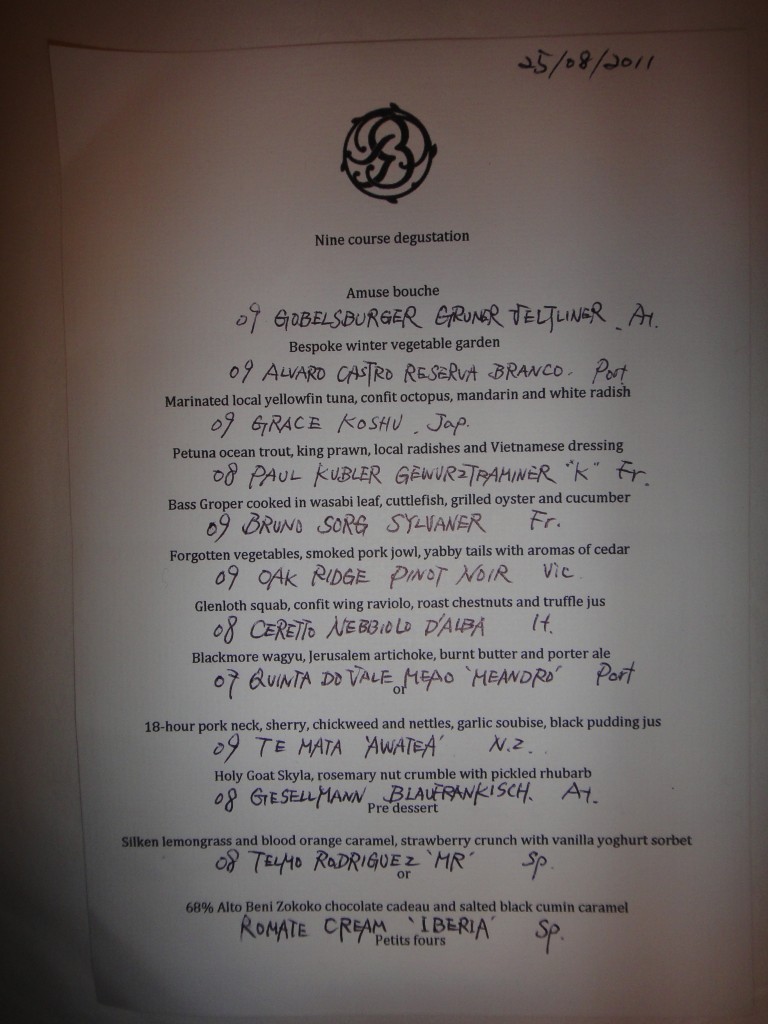 25/08/2011
Nine course degustation
Amuse bouche
09 GOBELSBURGER GRUNER VELTLINER. At.
Bespoke winter vegetable garden
09 ALVARO CASTRO RESERVA BRANCO. Port
Marinated local yellowfin tuna, confit octopus, mandarin and white radish
09 GRACE KOSHU. Jap.
Petuna ocean trout, king prawn, local radishes and Vietnamese dressing
08 PAUL KUBLER GEWURZTRAMINER "K" Fr.
Bass Groper cooked in wasabi leaf, cuttlefish, grilled oyster and cucumber
09 BRUNO SORG SYLVANER Fr.
Forgotten vegetables, smoked pork jowl, yabby tails with aromas of cedar
09 OAK RIDGE PINOT NOIR Vic
Glenloth squab, confit wing raviolo, roast chestnuts and truffle jus
08 CERETTO NEBBIOLO D'ALBA It.
Blackmore wagyu, Jerusalem artichoke, burnt butter and porter ale
07 QUINTA DO VALE MEAO 'MEANDRO' Port
or
18-hour pork neck, sherry, chickweed and nettles, garlic soubise, black pudding jus
09 TE MATA 'AWATEA' N.Z.
Holy Goat Skyla, rosemary nut crumble with pickled rhubarb
08 GESELLMANN BLAUFRANKISCH. At.
Pre dessert
Silken lemongrass and blood orange caramel, strawberry crunch with vanilla yoghurt sorbet
08 TELMO RODRIGUEZ 'MR' Sp.
or
68% Alto Beni Zokoko chocolate cadeau and salted black cumin caramel
ROMATE CREAM 'IBERIA' Sp.
Petits fours